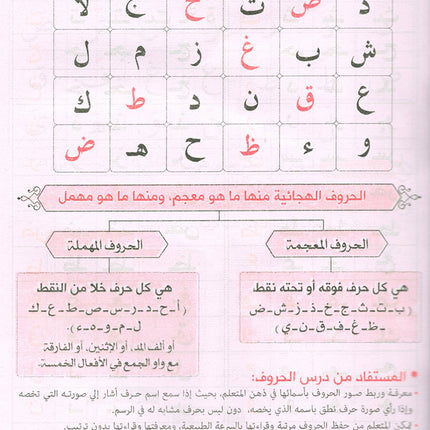 ص ت خ ج لا
ش ب غ ز م ل
ع ق ن د ط ك
و ء ظ ح هـ ض
الحروف الهجائية منها ما هو معجم، ومنها ما هو مهمل
الحروف المعجمة
هي كل حرف فوقه أو تحته نقط
(ب-ت-ث-ج-خ-ذ-ز-ش-ض
-ظ-غ-ف-ق-ن-ي)
الحروف المهملة
هي كل حرف خلا من النقط
(أ-ح-د-ر-س-ص-ط-ع-ك
ل-م-و-ه-ء).
أو ألف المد، أو الاثنين، أو الفارقة
مع واو الجمع في الأفعال الخمسة.
* المستفاد من درس الحروف:
- معرفة وربط صور الحروف بأسمائها في ذهن المتعلم، بحيث إذا سمع اسم حرف أشار إلى صورته التي تخصه
وإذا رأى صورة حرف نطق باسمه الذي يخصه، دون لبس بحرف مشابه له في الرسم.
- تمكن المتعلم من حفظ الحروف مرتبة وقراءتها بالسرعة الطبيعية، ومعرفتها وقراءتها بدون ترتيب.